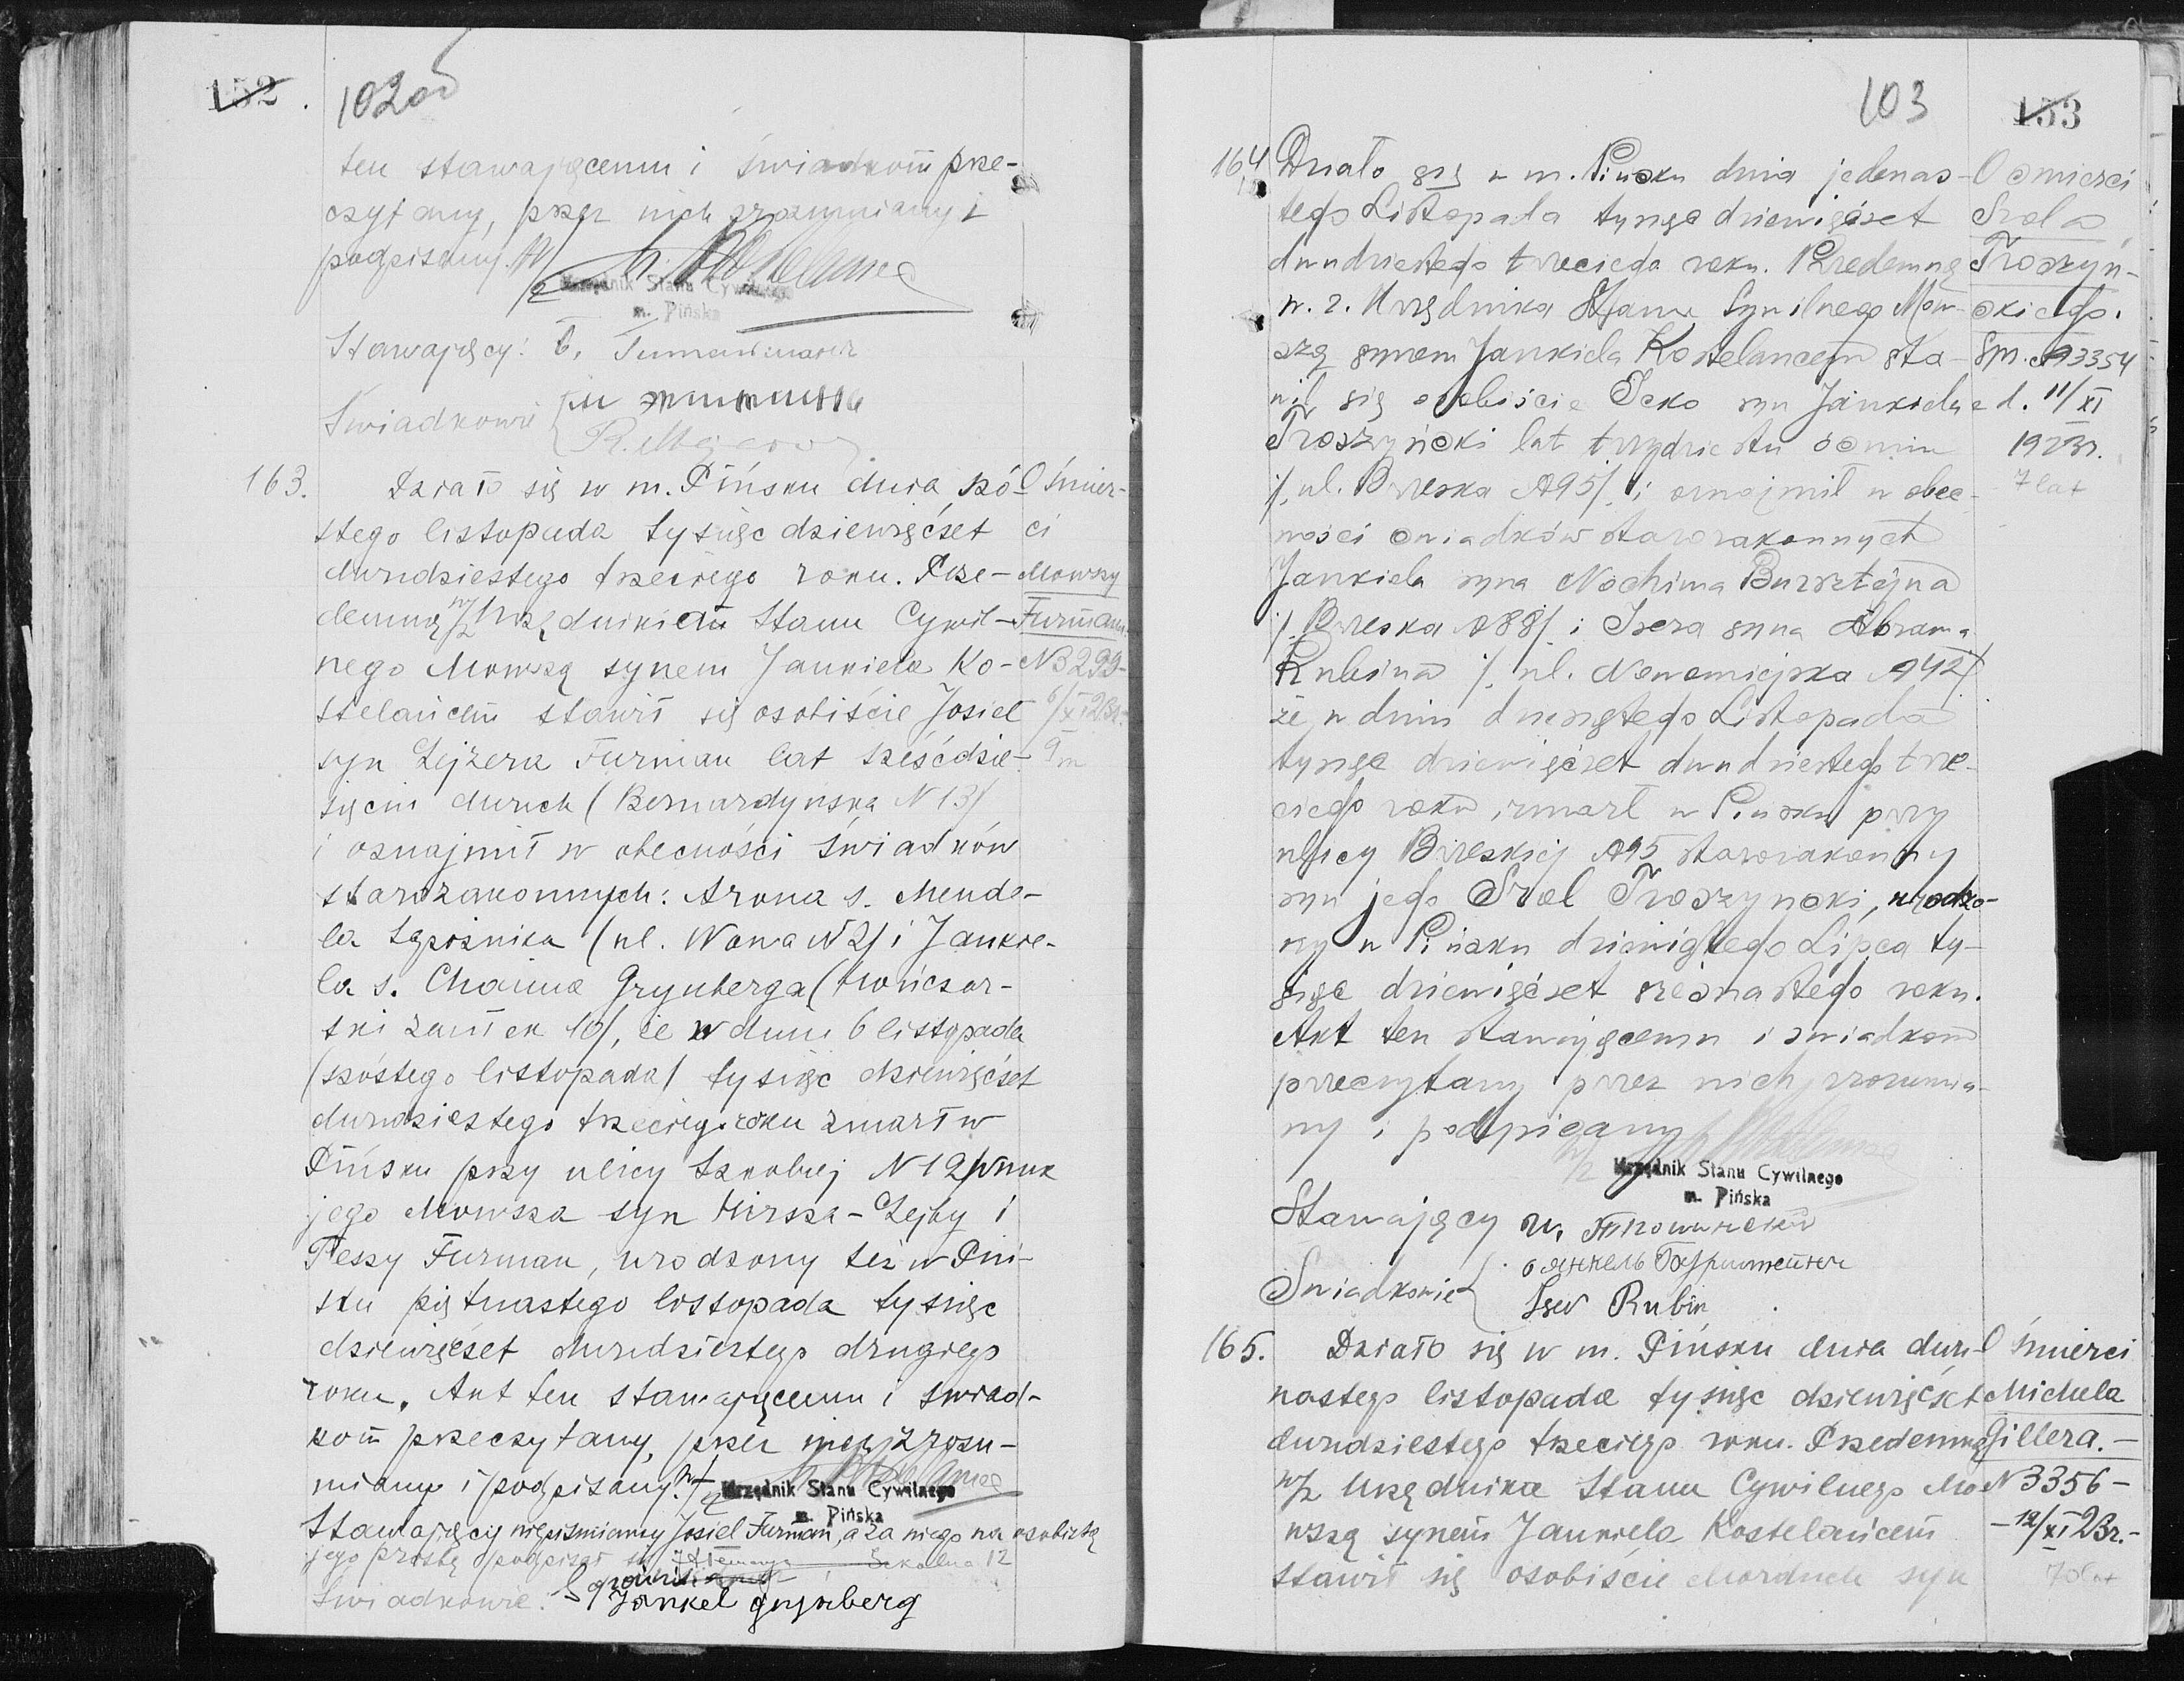 152.
102 od
ten stawającemu i świadkom prze-
czytany, przez nich zrozumiany i
podpisany.
Urzędnik Stanu Cywilnego
m. Pińska
Stawający:
Świadkowie
163.
Działo się w m. Pińsku dnia szó-
stego listopada tysiąc dziewięćset
dwudziestego trzeciego roku. Prze-
demną w/z Urzędnikiem Stanu Cywil-
nego Mowszą synem Jankiela Ko-
stelańcem stawił się osobiście Josiel
syn Lejzera Furman lat sześćdzie-
sięciu dwuch (Bernardynska N 13/
i oznajmił w obecności świadków
starozakonnych: Arona s. Mende-
la Sapożnika (ul. Nowa N 2/ i Jankie-
la s. Chaima Grynberga (Hończar-
ski zaułek 10/, że w dniu 6 listopada
(szóstego listopada/ tysiąc dziewięćset
dwudziestego trzeciego roku zmarł w
Pińsku przy ulicy Szkolnej N 12 wnuk
jego Mowsza syn Hirsza-Lejby i
Pessy Furman, urodzony też w Piń-
sku piętnastego listopada tysiąc
dziewięćset dwudziestego drugiego
roku. Akt ten stawającemu i świad-
kom przeczytany, przez niego zrozu-
miany i podpisany. w/z
Urzędnik Stanu Cywilnego
m. Pińska
Stawający niepiśmienny Josiel Furman, a za niego na osobistą
jego prośbę podpisał się Szkolna 12
Świadkowie:
Jankel Grynberg
O śmier-
ci
Mowszy
Furman
N 3299-
6/XI 23r.
9 m
103
153
164
Działo się w m. Pinsku dnia jedenas-
tego Listopada tysiąc dziewięćset
dwudziestego trzeciego roku. Przedemną
w. z. Urzędnika Stanu Cywilnego Mow-
szą synem Jankiela Kostelancem sta-
wił się osobiście Icko syn Jankiela
Troszyński lat trzydziestu ośmiu
/. ul. Brzeska N 95/. i oznajmił w obec-
ności świadków starozakonnych
Jankiela syna Nochima Bursztejna
/. Brzeska N 88/ i Isera syna Abrama
Rubina /. ul. Nowomiejska N 42/
że w dniu dziesiątego Listopada
tysiąc dziewięćset dwudziestego trze-
ciego roku zmarł w Pinsku przy
ulicy Brzeskiej N 95 starozakonny
syn jego Srol Troszynski, urodzo-
ny w Pińsku dziewiątego Lipca ty-
siąc dziewięćset szesnastego roku.
Akt ten stawającemu i swiadkom
przeczytany przez nich zrozumia-
ny i podpisany
Urzędnik Stanu Cywilnego
m. Pińska
Stawający
Swiadkowie
Iser Rubin
O smierci
Srola
Troszyn-
skiego.
Spr. N 3354
z d. 11/XI
1923r.
7 lat
165.
Działo się w m. Pińsku dnia dwu-
nastego listopada tysiąc dziewięćset
dwudziestego trzeciego roku. Przedemną
w/z Urzędnika Stanu Cywilnego Mo-
wszą synem Jankiela Kostelańcem
stawił się osobiście Morduch syn
O śmierci
Michela
Gillera.-
N 3356-
-12/XI 23r.-
70 lat